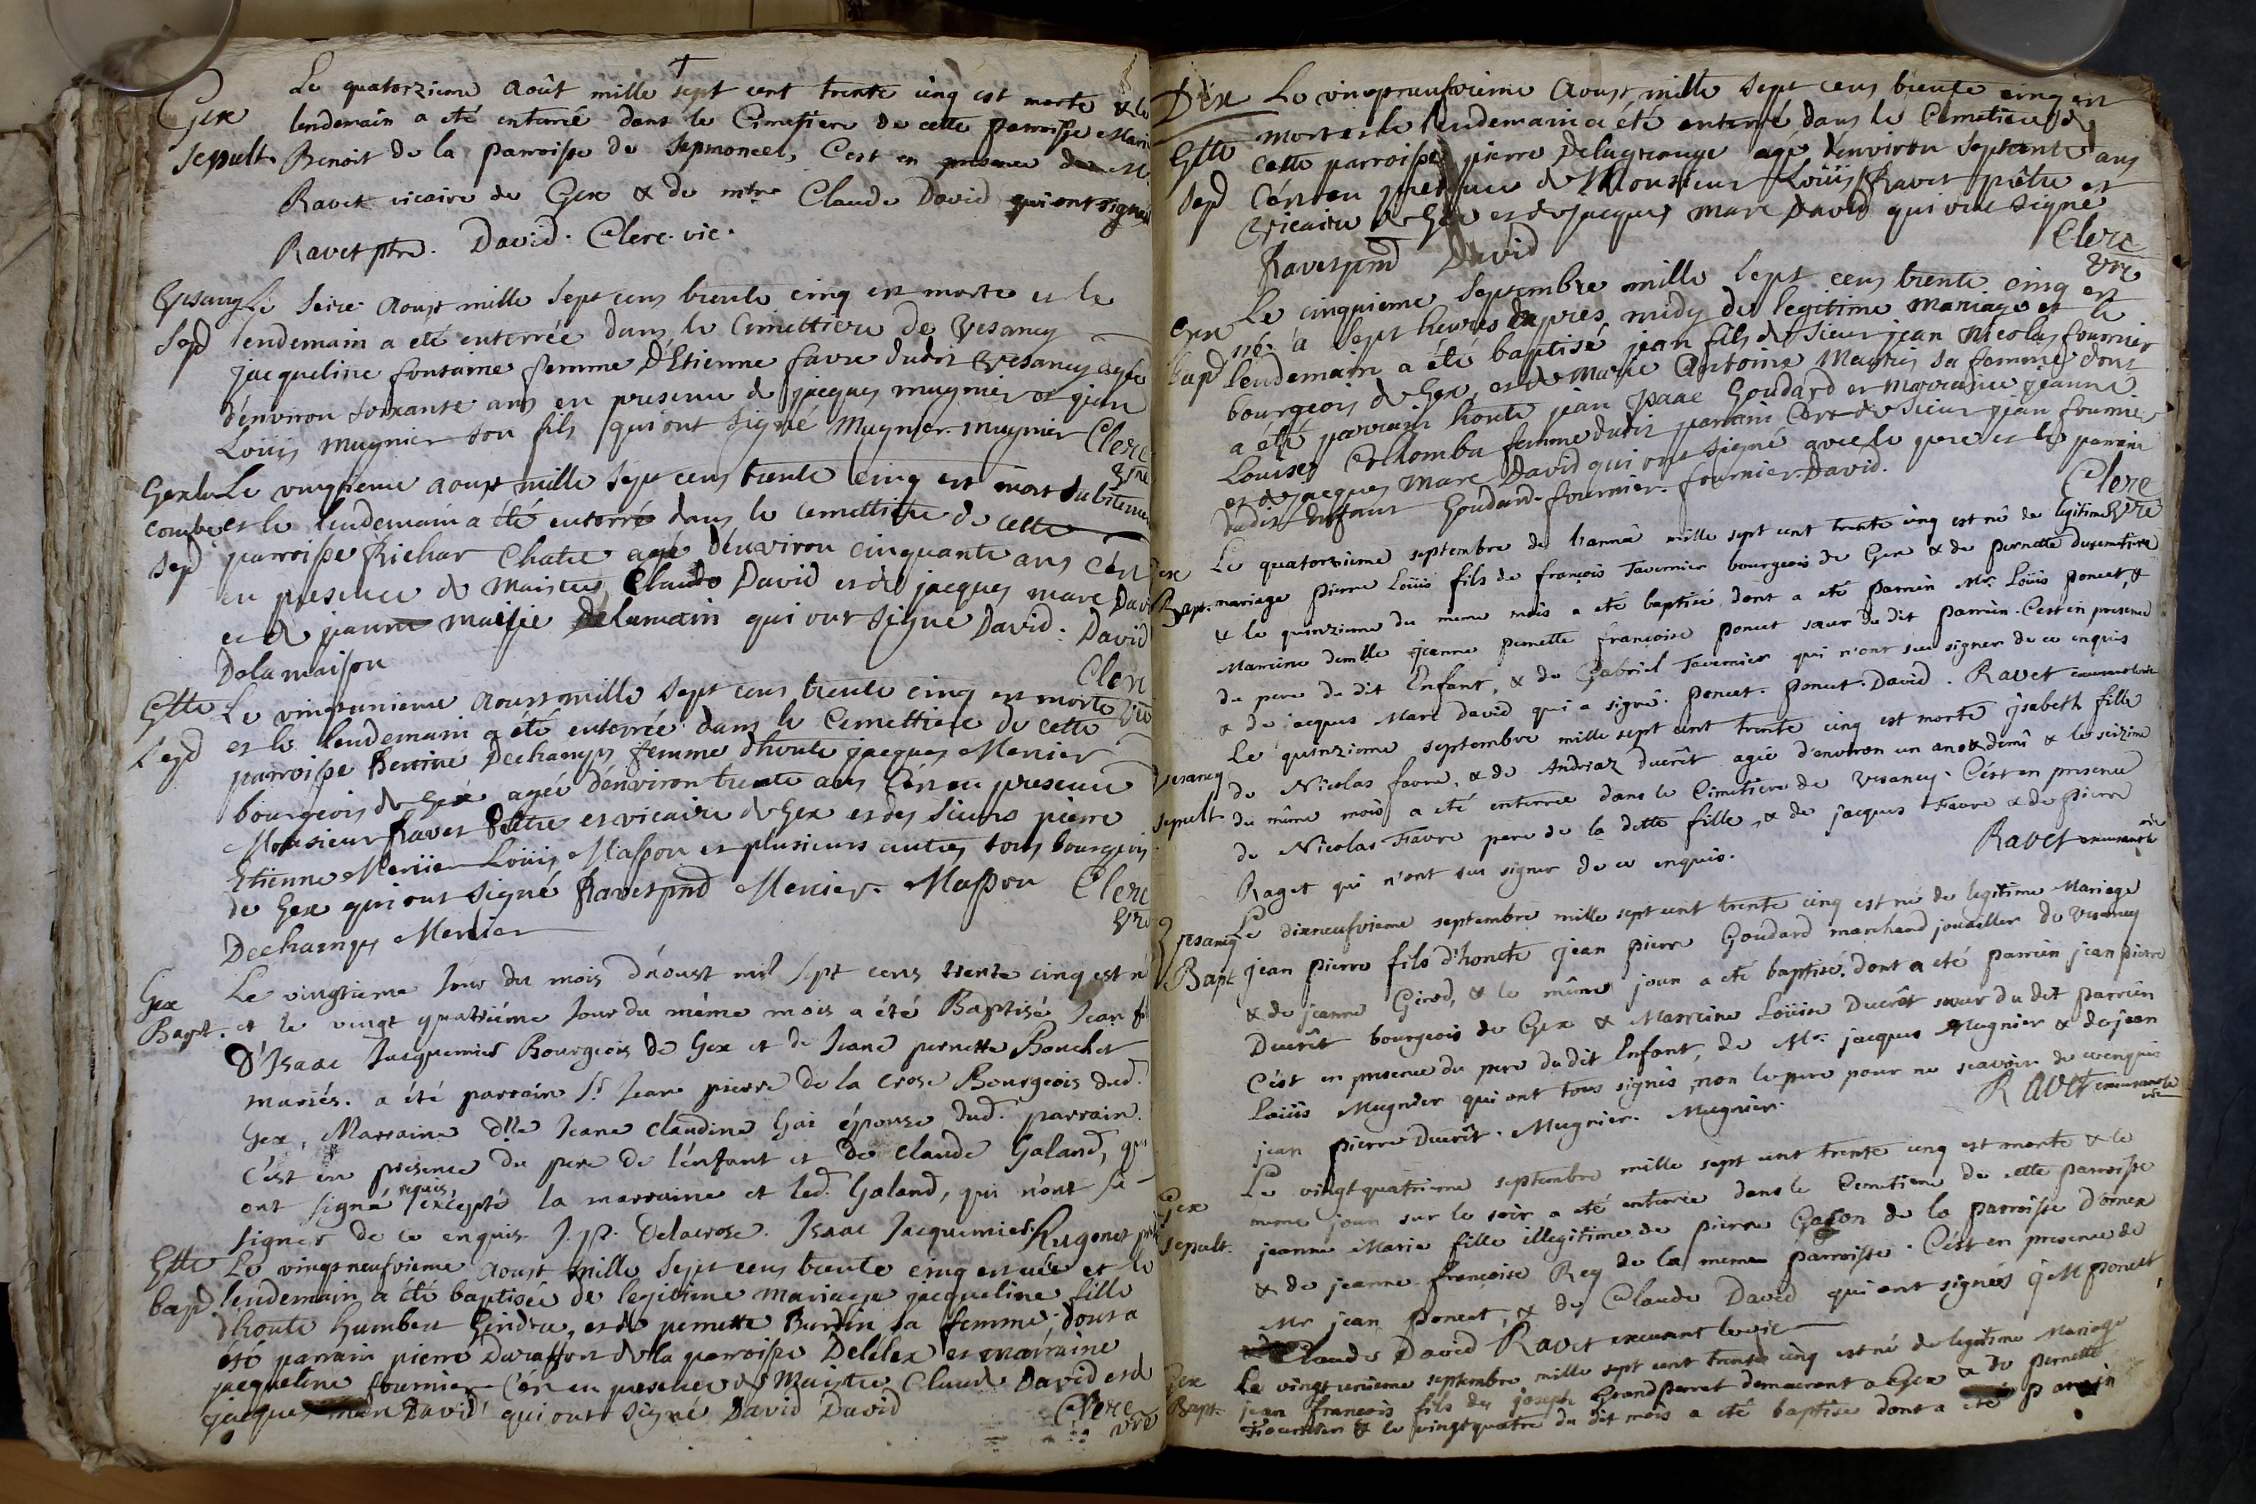 Gex
Sepult.
Le quatorzieme Août mille sept cent trente cinq est morte & le
lendemain a eté enterrée dans le Cimetiere de cette parroisse Marie
Benoit de la parroisse de Sepmoncel, C'est en presence de Mr
Ravet vicaire de Gex & de mtre Claude David qui ont signé
Ravet ptre. David. Clerc. vic.
Vesancy
Sepd
Le seize Aoust mille sept cens trente cinq est morte et le
lendemain a eté enterrée dans le Cimettiere de Vesancy
jacqueline fontaine femme D'Etienne favre dudit Vesancy agée
d'environ soixante ans en presence de jacques mugnier et jean
Louis mugnier son fils qui ont signé Mugnier mugnier Clerc
vre
Gex la
combe
Sepd
Le vingtieme aoust mille sept cens trente cinq est mort subitement
et le lendemain a été enterré dans le cemettiere de cette
parroisse Richar Chatre agé d'environ cinquante ans c'est
en presence de Maistres Claude David et de jacques marc David
et de qui ont signé David. David
Delamaison
Clerc
vre
Gtte
Sepd
Le vingtunieme Aoust mille sept cens trente cinq est morte
et le lendemain a été enterrée dans le Cemettiere de cette
parroisse Dechamps femme d'honte jacques Mercier
bourgeois de Gex agée d'environ trente ans C'est en presence
Monsieur Ravet Prêtre et vicaire de Gex et des Sieurs pierre
Etienne Mercier Louis Masson et plusieurs autres tous bourgeois
de Gex qui ont signé Ravet Mercier. Masson Clerc
vre
Dechamps Mercier
Gex
Bapt.
Le vingtieme Jour du mois d'aoust mil sept cens trente cinq est né
et le vingt quatriéme Jour du méme mois a été Baptisé Jean fils
D'Isaac Jacquemier Bourgeois de Gex et de Jeane pernette Bouchet
mariés. a été parrain Sr Jean pierre de la crose Bourgeois dud.
Gex, Marraine Dlle Jeane claudine Gai épouse dud. parrain.
C'est en presence du pere de l'enfant et De claude Galand, qui
ont signé excepté la marraine et led. Galand, qui n'ont sçu
requis
signer de ce enquis. J. P. Delacrose. Isaac Jacquemier. Hugonet
Gtte
bapd
Le vingt neufvieme Aoust mille sept cens trente cinq est née et le
lendemain a été baptisée de legitime mariage jacqueline fille
d'honte humbert Gindre, et de pernette Burdin sa femme; dont a
été parrain pierre Duraffort de la parroisse Delelex et marraine
jacqueline fournier C'est en presence de Maistre Claude David et de
jacques marc David qui ont signé David David
Clerc
vre
Gex
Gtte
Sepd
Le vingtneufvieme Aoust mille sept cens trente cinq est
mort et le lendemain a été enterré dans le Cemetiere de
cette parroisse pierre Delagrange agé d'environ septante ans
C'est en presence de Monsieur Loüis Ravet prêtre et
Vicaire de Gex et de jacques marc David qui ont signé
Ravet David
Clerc
vre
Gex
bapd
Le cinquieme Septembre mille sept cens trente cinq est
né à sept heures dapres midy de legitime mariage et le
lendemain a été baptisé jean fils de Sieur jean Nicolas fournier
bourgeois de Gex, et de Marie Antoine sa femme dont
a été parrain honte jean Isaac Goudard et Marraine jeanne
Louise Colomba femme dudit parrain C'est de Sieur jean fournier
et de jacques Marc David qui ont signé avec le pere et le parrain
dudit Enfant Goudard. fournier. fournier. David.
Clerc
vre
Gex
Bapt.
Le quatorzieme septembre de l'année mille sept cent trente cinq est né de legitime
mariage pierre Loüis fils de françois Tavernier bourgeois de Gex & de pernette
& le quinzieme du meme mois a eté baptisé dont a eté parrain Mr Loüis poncet, &
Marraine demlle jeanne pernette françoise poncet sœur du dit parrain. C'est en presence
du pere du dit Enfant, & de Gabriel Tavernier qui n'ont sceu signer de ce enquis
& de jacques Marc David qui a signé. poncet. poncet. David. Ravet
Vesancy
sepult
Le quinzieme septembre mille sept cent trente cinq est morte ysabeth fille
de Nicolas favre, & de Andriaz ducrêt agée d'environ un an & demi & le seizime
du même mois a eté enterrée dans le Cimetiere de Vesancy. C'est en presence
de Nicolas Favre pere de la ditte fille, & de jacques Favre & de pierre
Raget qui n'ont sceu signer de ce enquis.
Ravet
Vesancy
Bapt
Le dixneufvieme septembre mille sept cent trente cinq est né de legitime Mariage
jean pierre fils d'honete jean pierre Goudard marchand jouailler de Vesancy
& de jeanne Girod, & le même jour a eté baptisé, dont a eté parrain jean pierre
Ducrêt bourgeois de Gex & Marraine Loüise Ducrêt sœur du dit parrain
C'est en presence du pere du dit Enfant, de Mr. jacques Mugnier & de jean
Loüis Mugnier qui ont tous signés, non le pere pour ne sçavoir de ce enquis
jean pierre Ducrêt. Mugnier. Mugnier.
Ravet
Gex
sepult.
Le vingtquatrieme septembre mille sept cent trente cinq est morte & le
meme jour sur le soir a eté enterrée dans le Cemetiere de cette parroisse
jeanne Marie fille illegitime de pierre Gason de la parroisse d'ornex
& de jeanne françoise Rey de la meme parroisse. C'est en presence de
Mr jean poncet, & de Claude David qui ont signés j M poncet
Claude David Ravet
Gex
Bapt.
Le vingt unieme septembre mille sept cent trente cinq est né de legitime Mariage
jean françois fils de joseph Grandperret demeurant a Gex & de pernette
Fournier & le vingtquatre du dit mois a eté baptisé dont a eté parrain